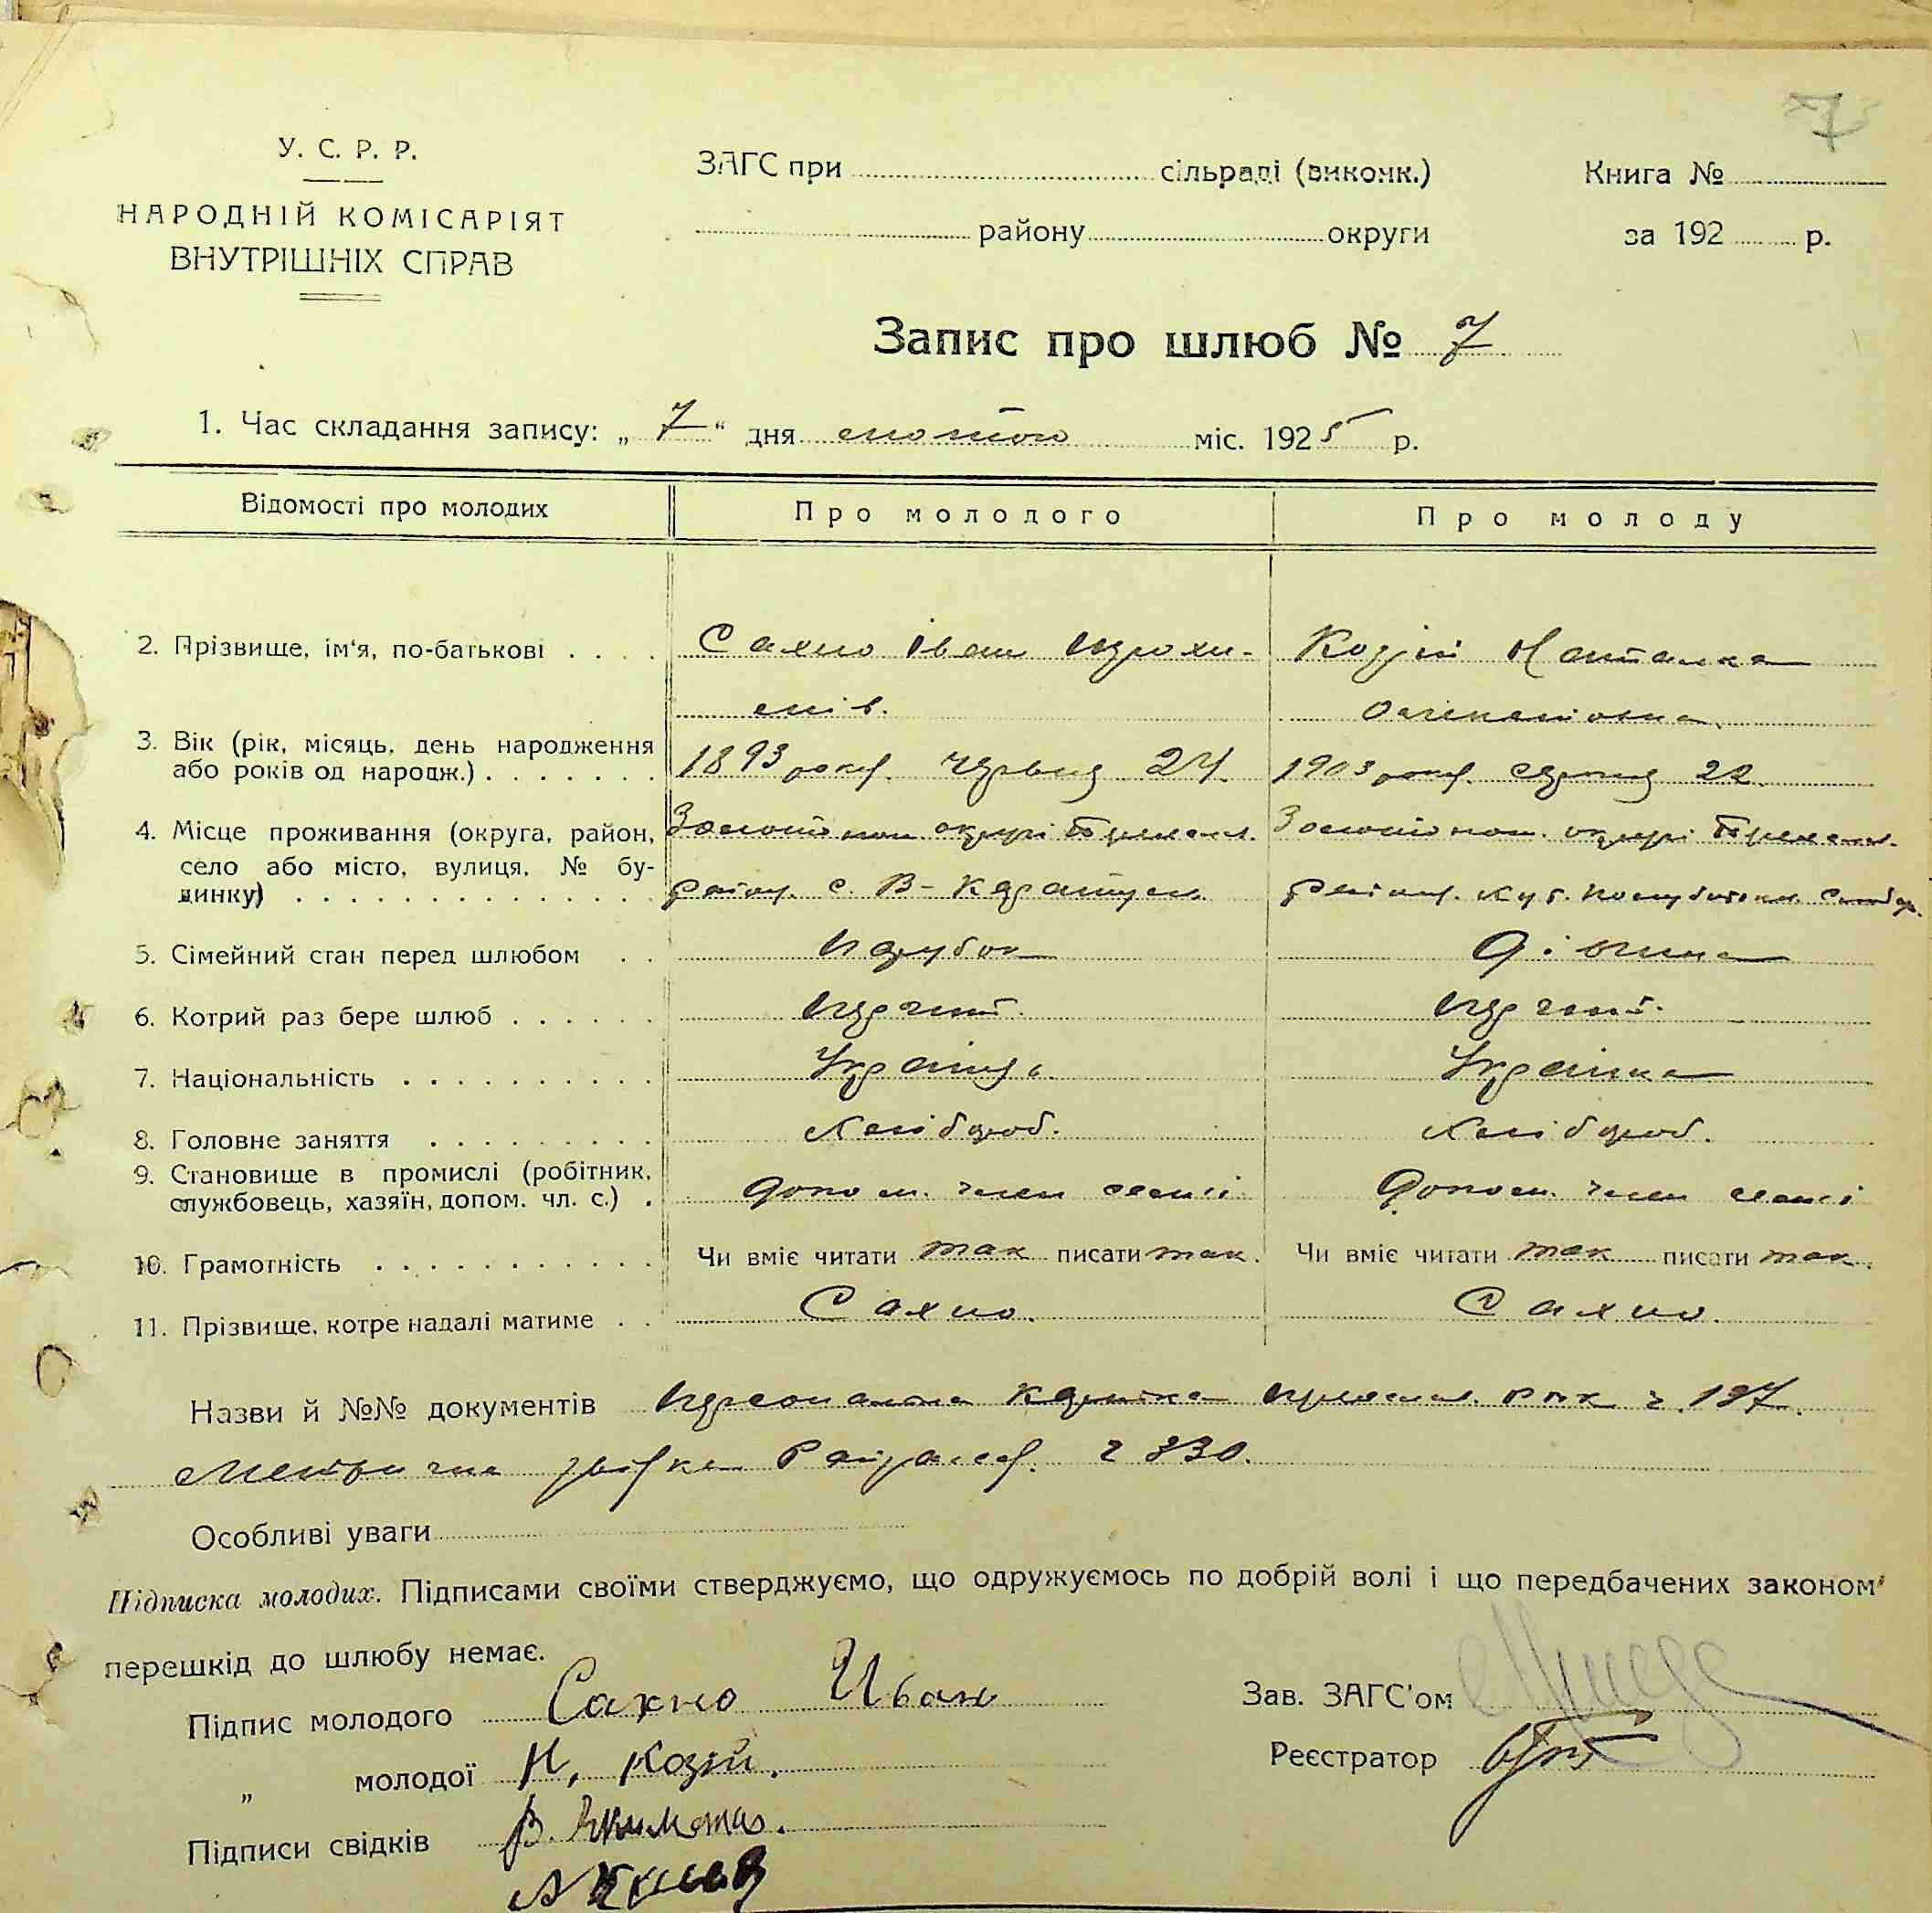 7
У. С. Р. Р.
НАРОДНІЙ КОМІСАРІЯТ
ВНУТРІШНІХ СПРАВ
ЗАГС при сільраді (виконк.)
району округи
Книга №
за 192 р.
Запис про шлюб № 7
1. Час складання запису: „ 7 “ дня лютого міс. 1925 р.
Відомості про молодих
Про молодого
Про молоду
2. Прізвище, ім‘я, по-батькові
Сахно Іван
Козій Наталка
3. Вік (рік, місяць, день народження
або років од народж.)
1893 року. червня 24.
1903 року. серпня 22.
4. Місце проживання (округа, район,
село або місто, вулиця, № бу-
динку)
Золотонош. округи
району. с. В-Каратуль
Золотонош. округи
району. хут.
5. Сімейний стан перед шлюбом
парубок
дівчина
6. Котрий раз бере шлюб
перший.
перший.
7. Національність
Українець.
Українка
8. Головне заняття
хлібороб.
хлібороб.
9. Становище в промислі (робітник,
службовець, хазяїн, допом. чл. с.)
допом. член сем'ї
допом. член сем'ї
10. Грамотність
Чи вміє читати так писати так.
Чи вміє читати так писати так.
11. Прізвище, котре надалі матиме
Сахно.
Сахно.
Назви й №№ документів Персональна картка РВК ч. 197.
Метрична ч 330.
Особливі уваги
Підписка молодих. Підписами своїми стверджуємо, що одружуємось по добрій волі і що передбачених законом
перешкід до шлюбу немає.
Підпис молодого Сахно Иван
„ молодої Н. Козій.
Підписи свідків В.
Зав. ЗАГС’ом
Реєстратор